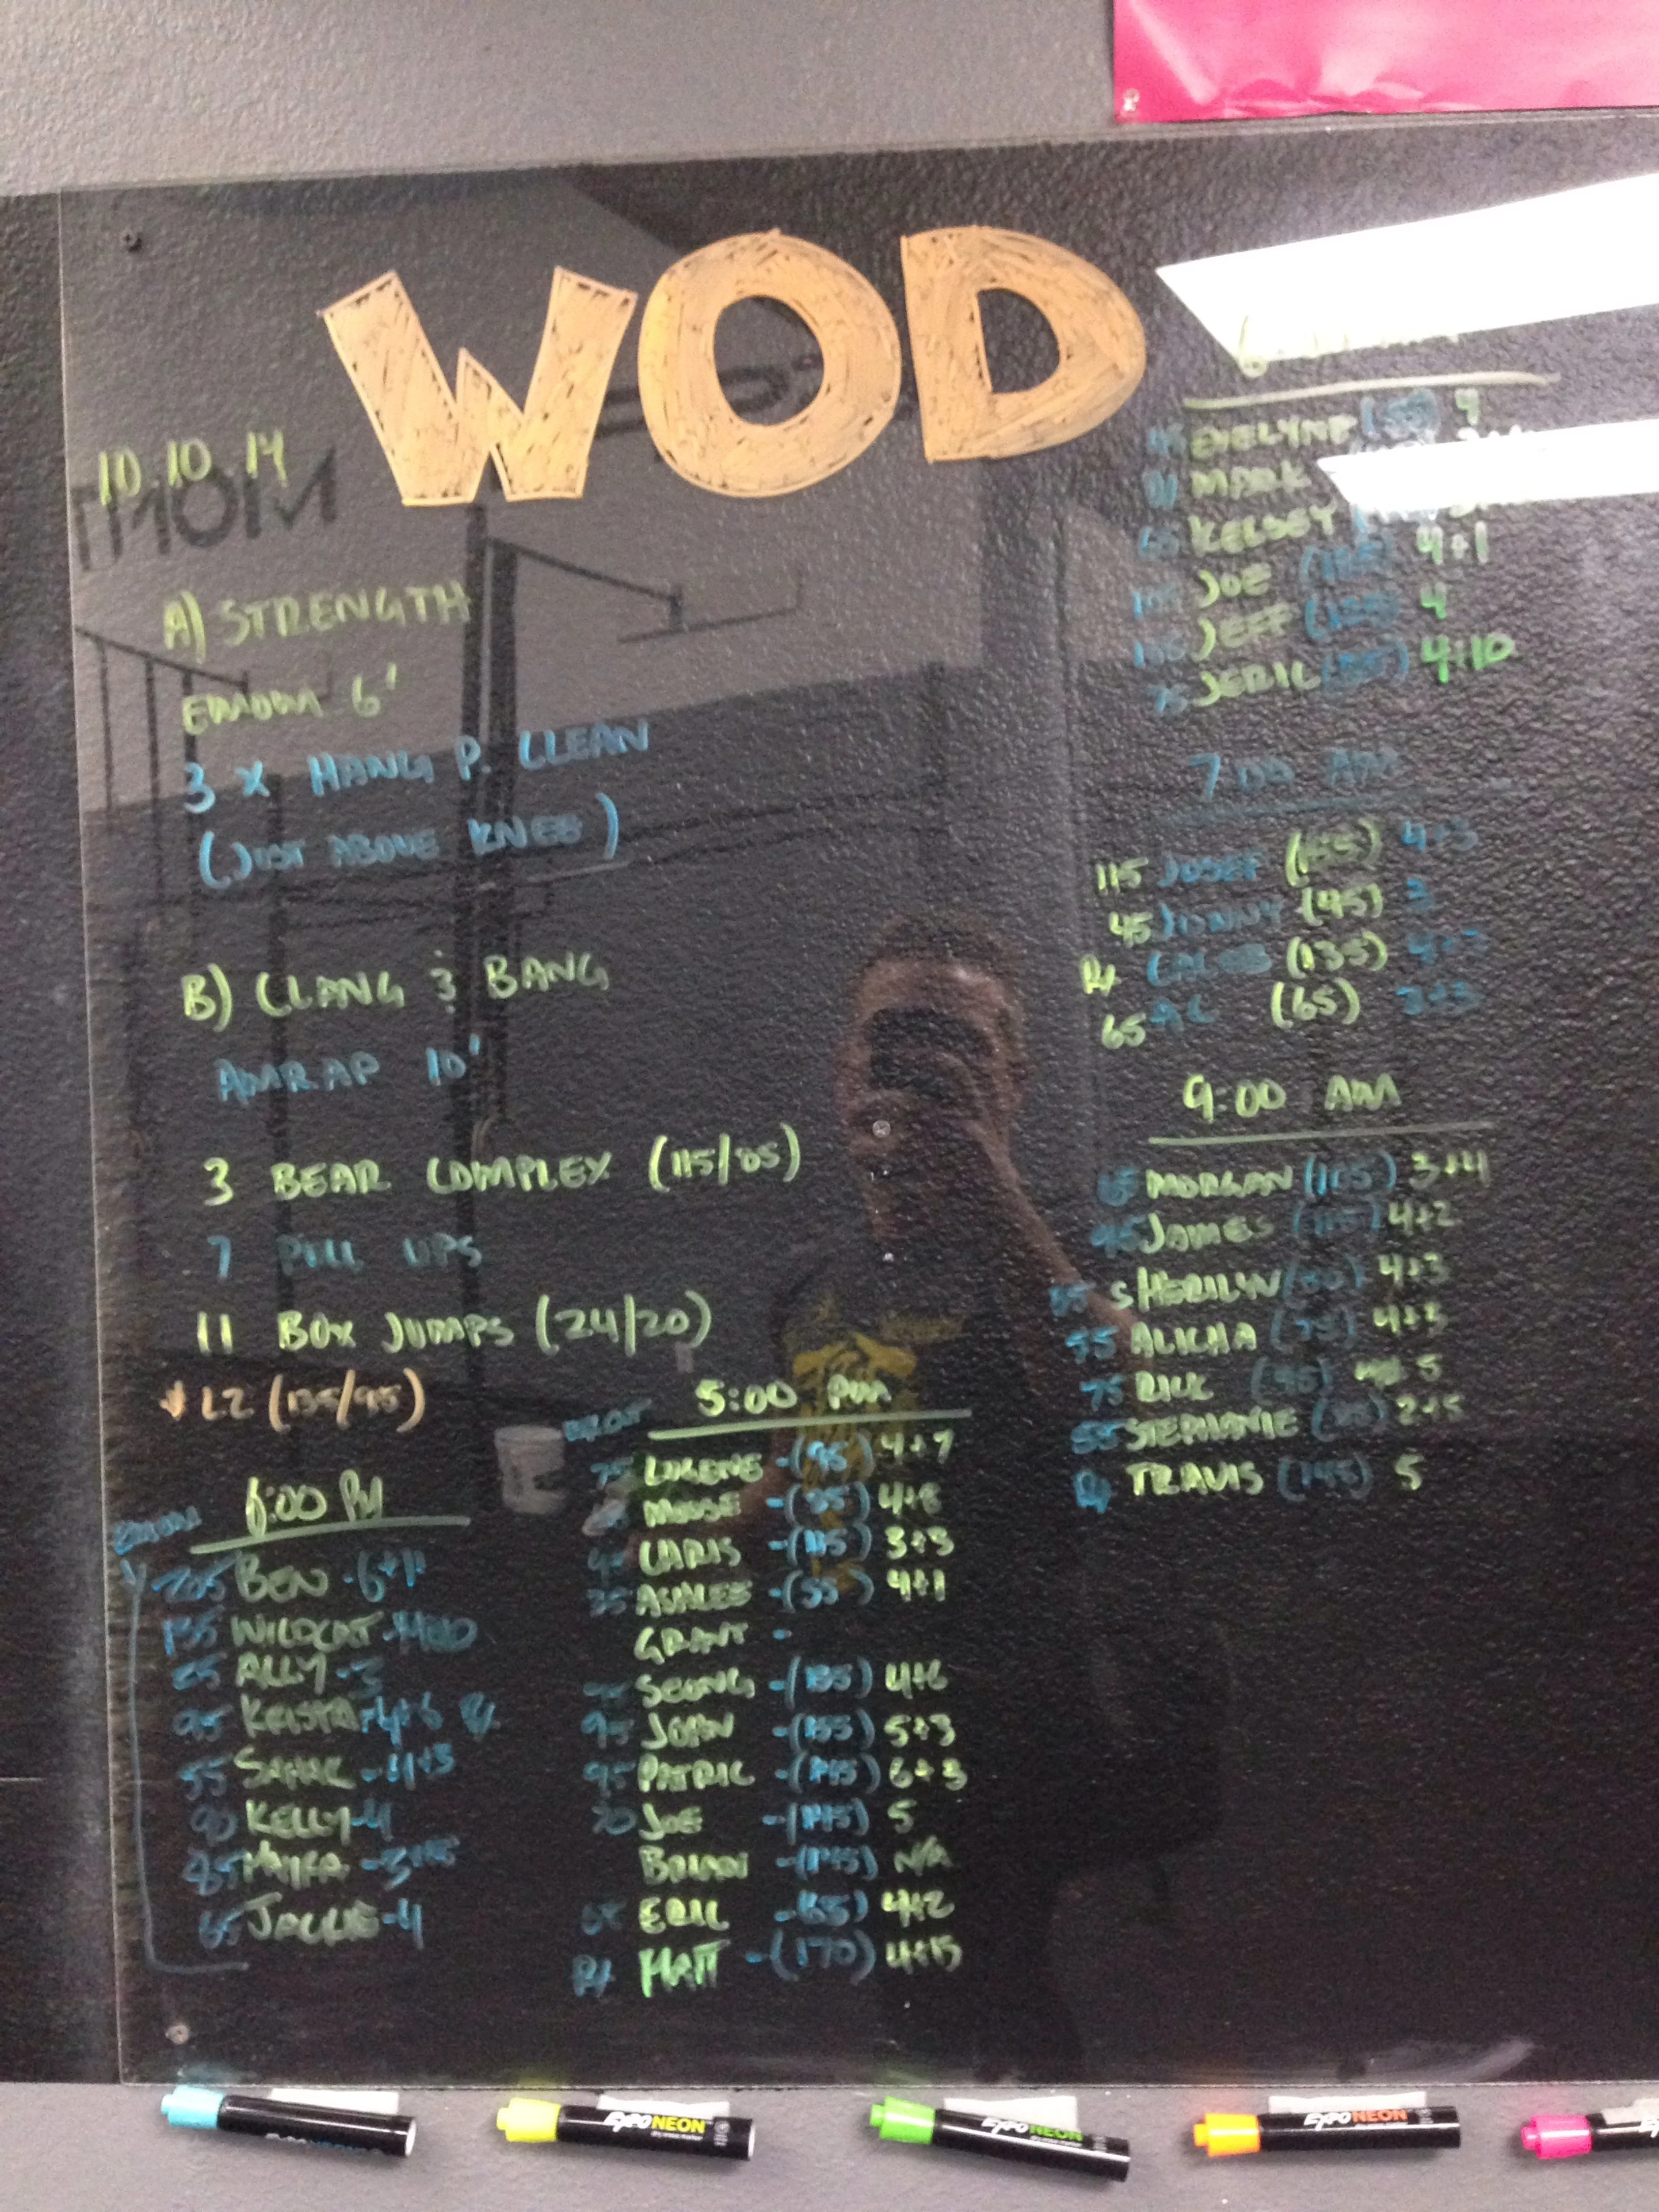 WOD
10.10.14
A) STRENGTH
EMOM 6'
3 X HANG P. CLEAN
(JUST ABOVE KNEE)
B) CLANG & BANG
AMRAP 10'
3 BEAR COMPLEX (115/85)
7 PULL UPS
11 BOX JUMPS (24/20)
* L2 (135/95)
6:00 PM
EMOM
205 BEN - 6+11
135 WILDCAT
ALLY - 3
95 KRISTA - 4+6
55 SAHAR - 4+3
KELLY - 4
85
65 JACKIE - 4
5:00 PM
75 - (95) 4+7
MOOSE - (55) 4+8
CHRIS - (115) 3+3
35 ASHLEE - (55) 4+1
GRANT -
SEUNG - (135) 4+6
95 JOHN - (155) 5+3
95 PATRIC - (145) 6+3
70 JOE - (145) 5
BRIAN - (145) N/A
65 ERIC - (65) 4+2
RX MATT - (170) 4+15
EVELYNE (55) 4
MARK
65 KELSEY
JOE 4+1
JEFF 4
75 JERIC 4+10
7:00 AM
115 JOSEF (155) 4+3
45 JONNY (95) 3
RX CALEB (135) 4+3
65 AL (65) 3+3
9:00 AM
65 MORGAN (105) 3+4
95 JAMES (115) 4+2
SHERILYN 4+3
55 ALICHA (75) 4+3
75 RICK (95) 5
55 STEPHANIE 2+5
RX TRAVIS (145) 5
EXPO NEON
EXPO NEON
EXPO NEON
EXPO NEON